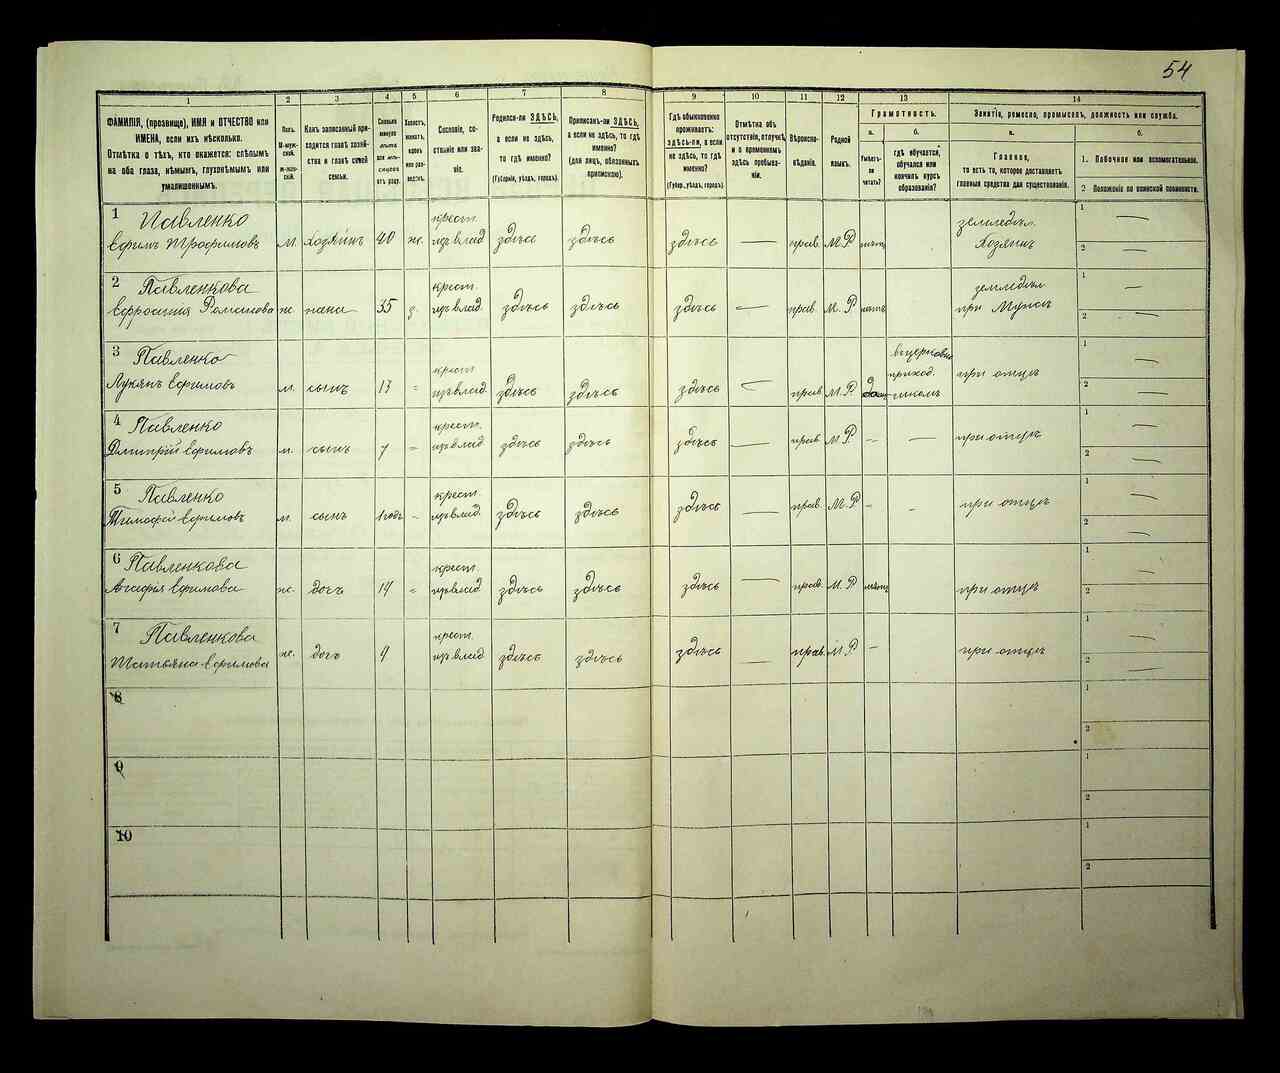 54
1 2 3 4 5 6 7 8 9 10 11 12 13 14
ФАМИЛІЯ, (прозвище), ИМЯ и ОТЧЕСТВО или
ИМЕНА, если ихъ нѣсколько.
Отмѣтка о тѣхъ, кто окажется: слѣпымъ
на оба глаза, нѣмымъ, глухонѣмымъ или
умалишеннымъ.
Полъ.
М-муж-
ской.
ж-жен-
скій.
Какъ записанный при-
ходится главѣ хозяй-
ства и главѣ своей
семьи.
Сколько
минуло
лѣтъ
или мѣ-
сяцевъ
отъ роду.
Холостъ,
женатъ,
вдовъ
или раз-
веденъ.
Сословіе, со-
стояніе или зва-
ніе.
Родился-ли ЗДѢСЬ,
а если не здѣсь,
то гдѣ именно?
(Губернія, уѣздъ, городъ).
Приписанъ-ли ЗДѢСЬ,
а если не здѣсь, то гдѣ
именно?
(для лицъ, обязанныхъ
припискою).
Гдѣ обыкновенно
проживаетъ:
ЗДѢСЬ-ЛИ, а если
не здѣсь, то гдѣ
именно?
(Губер., уѣздъ, городъ).
Отмѣтка объ
отсутствіи, отлучкѣ
и о временномъ
здѣсь пребыва-
ніи.
Вѣроиспо-
вѣданіе.
Родной
языкъ.
Грамотность.
а.
Умѣетъ-
ли
читать?
б.
гдѣ обучается,
обучался или
кончилъ курсъ
образованія?
Занятіе, ремесло, промыселъ, должность или служба.
а.
Главное,
то есть то, которое доставляетъ
главныя средства для существованія.
б.
1. Побочное или вспомогательное.
2 Положеніе по воинской повинности.
1 Павленко
Ефимъ Трофимовъ м. Хозяинъ 40 ж. крест. изъ влад здѣсь здѣсь здѣсь — прав. М.Р. нѣтъ земледѣл. Хозяинъ
1 —
2 —
2 Павленкова
Ефросинія Романова ж жена 35 з. крест. изъ влад здѣсь здѣсь здѣсь — прав. М.Р нѣтъ земледѣл при Мужѣ
1 —
2 —
3 Павленко
Лукянъ Ефимовъ м. сынъ 13 - крест изъ влад здѣсь здѣсь здѣсь — прав М.Р. да вцерковно приход. школѣ при отцѣ
1 —
2 —
4 Павленко
Дмитрій Ефимовъ м. сынъ 7 - крест. изъ влад здѣсь здѣсь здѣсь — прав М.Р. - — при отцѣ
1 —
2 —
5 Павленко
Тимофей Ефимовъ м сынъ 1 годъ - крест. изъ влад. здѣсь здѣсь здѣсь — прав. М.Р - - при отцѣ
1 —
2 —
6 Павленкова
Агафія Ефимова ж. дочь 14 - крест. изъ влад здѣсь здѣсь здѣсь — прав. М.Р нѣтъ при отцѣ
1 —
2 —
7 Павленкова
Татьяна Ефимова ж. дочь 4 крест. изъ влад здѣсь здѣсь здѣсь — прав. М.Р - при отцѣ
1 —
2 —
8
1
2
9
1
2
10
1
2